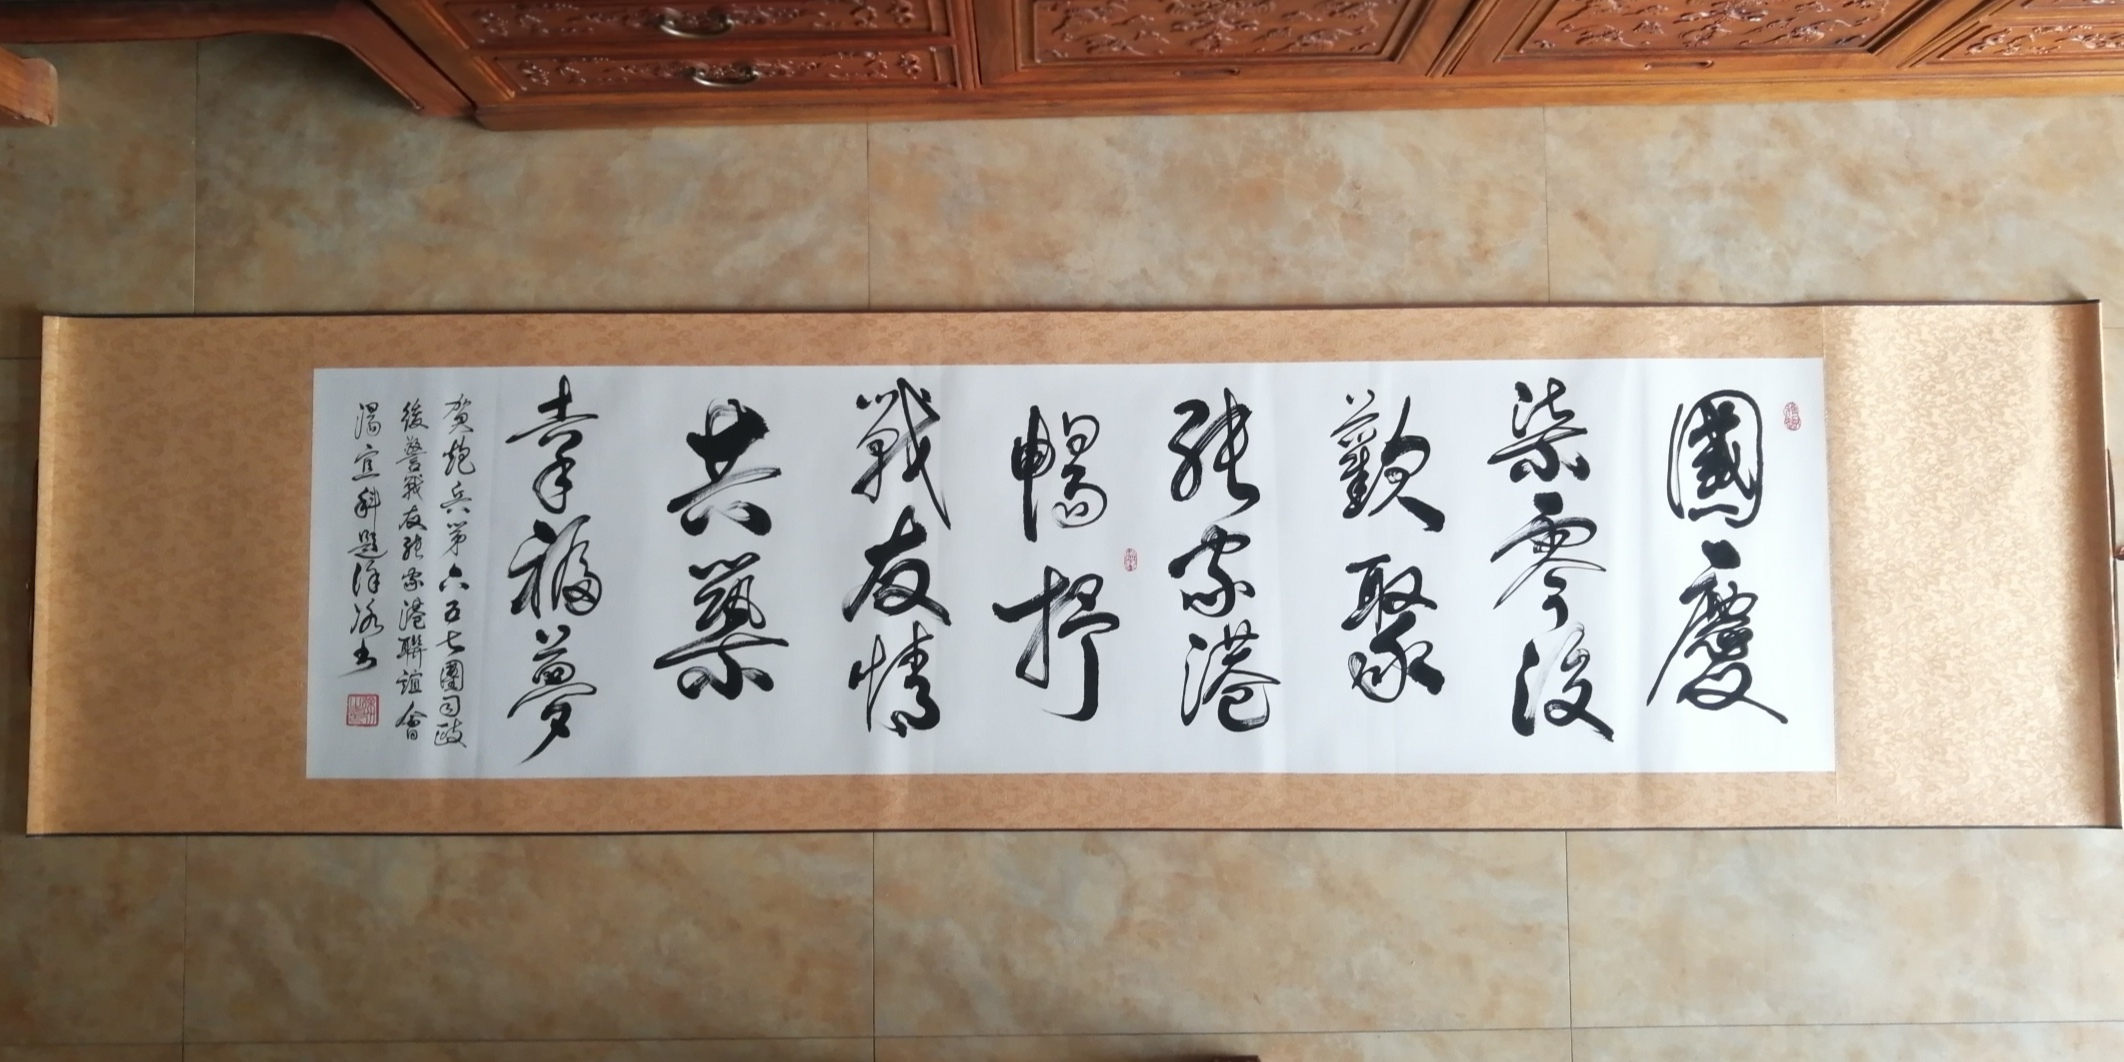 國慶
柒零後
歡聚
張家港
暢抒
戰友情
共築
幸福夢
賀炮兵第六五七團司政
後警戰友張家港聯誼會
湯宜科題 冰書